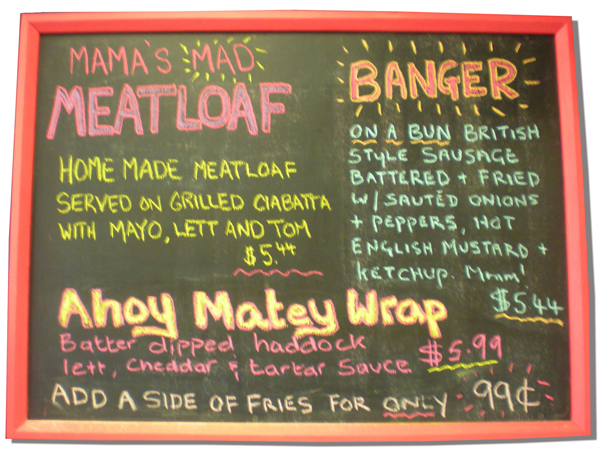 MAMA'S MAD
MEATLOAF
HOME MADE MEATLOAF
SERVED ON GRILLED CIABATTA
WITH MAYO, LETT AND TOM
$5.44
BANGER
ON A BUN BRITISH
STYLE SAUSAGE
BATTERED + FRIED
W/ SAUTĒD ONIONS
+ PEPPERS, HOT
ENGLISH MUSTARD +
KETCHUP. Mmm!
$5.44
Ahoy Matey Wrap
Batter dipped haddock
lett, Cheddar & tartar Sauce
$5.99
ADD A SIDE OF FRIES FOR ONLY 99¢